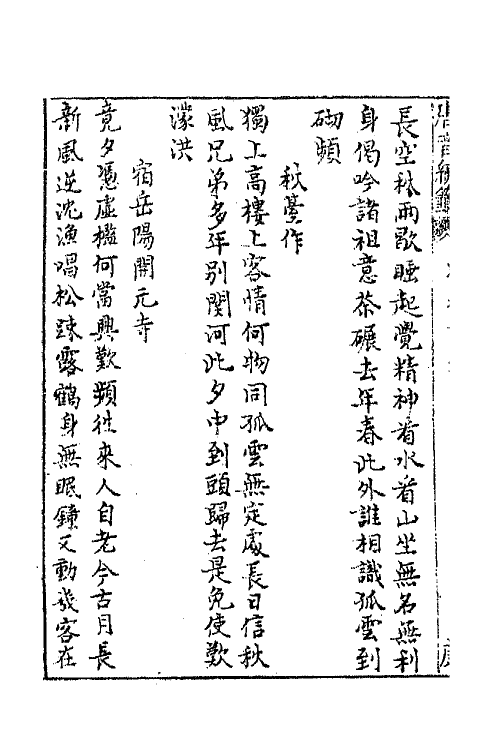 長空秋雨歇睡起覺精神看水看山坐無名無利
身偈吟諸祖意茶碾去年春此外誰相識孤雲到
砌頻
秋臺作
獨上高樓上客情何物同孤雲無定處長日信秋
風兄弟多年別關河此夕中到頭歸去是免使歎
濛洪
宿岳陽開元寺
竟夕憑虛檻何當興歎頻往來人自老今古月長
新風逆沈漁唱松疎露鶴身無眠鐘又動幾客在